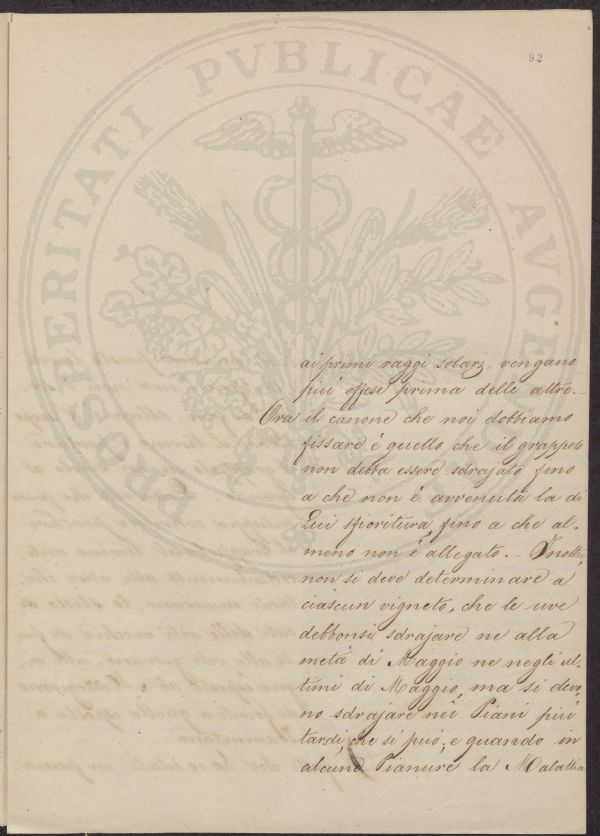 92
PROSPERITATI PVBLICAE AVGE
ai primi raggi solari, vengano
più offese prima delle altre.
Ora il canone che noi dobbiamo
fissare é quello che il grappolo
non debba essere sdrajato fino
a che non é avvenuta la di
Lui sfioritura, fino a che al-
meno non é allegato. Inoltre
non si deve determinare a
ciascun vigneto, che le uve
debbonsi sdrajare ne alla
metà di Maggio ne negli ul-
timi di Maggio, ma si devo-
no sdrajare nei Piani più
tardi che si può, e quando in
alcune Pianure la Malattia